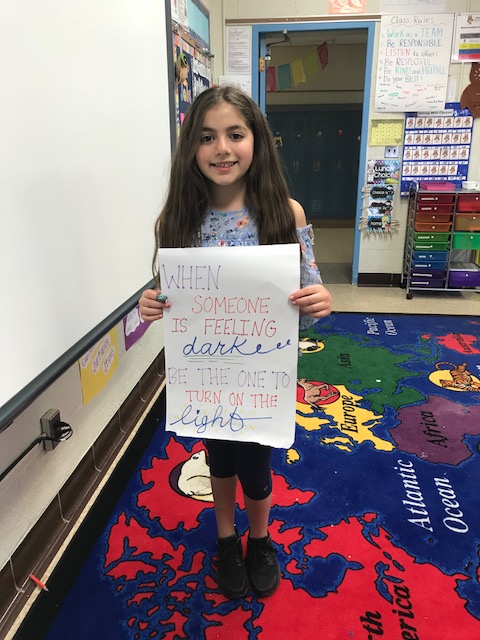 Class Rules
Work as a TEAM
Be RESPONSIBLE
LISTEN to others
Be RESPECTFUL
Be KIND and HELPFUL
Do your BEST!
Lunch Choice
WHEN
SOMEONE
IS FEELING
dark
BE THE ONE TO
TURN ON THE
light
Pacific
Ocean
Asia
Europe
Africa
Atlantic
Ocean